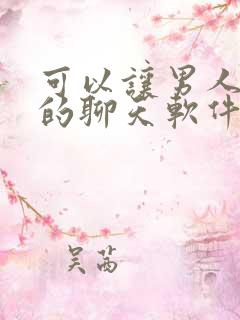 可以讓男人
的聊天軟件
吴茜